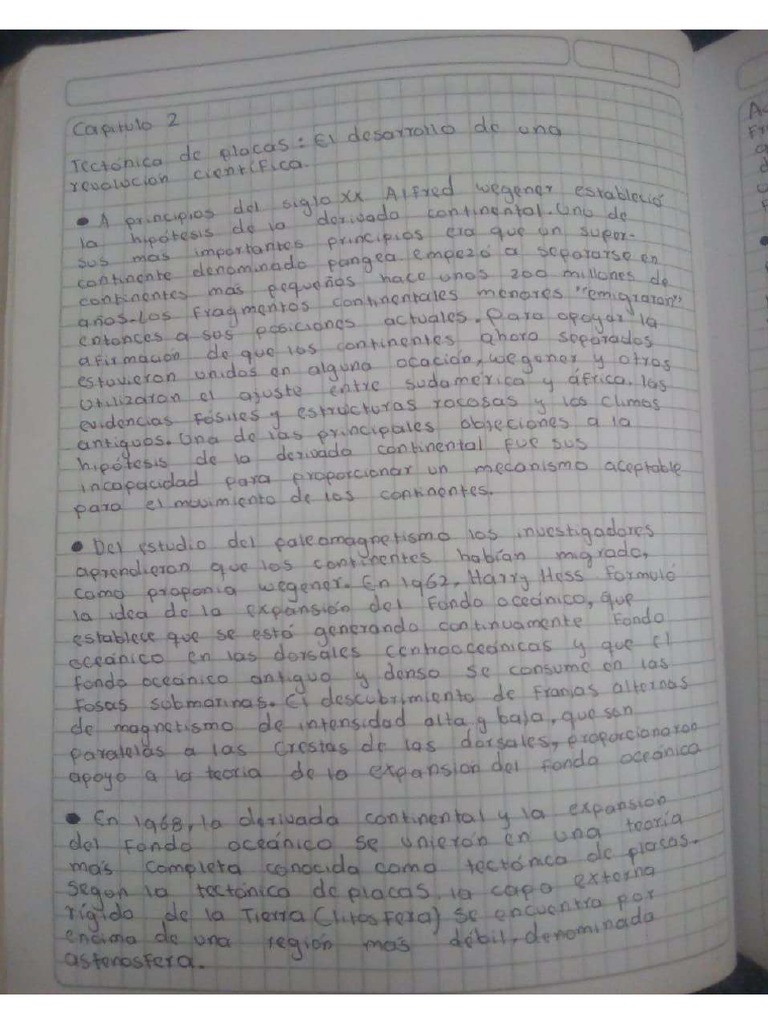 Capitulo 2
Tectónica de placas: El desarrollo de una
revolucion científica.
• A principios del siglo XX Alfred wegener estableció
la hipótesis de la derivada continental. Uno de
sus mas importantes principios era que un super-
continente denominado pangea empezó a separarse en
continentes mas pequeños hace unos 200 millones de
años. Los fragmentos continentales menores "emigraran"
entonces a sus posiciones actuales. Para apoyar la
afirmación de que los continentes ahora separados
estuvieron unidos en alguna ocación, wegener y otros
utilizaran el ajuste entre sudamérica y áfrica. las
evidencias fósiles y estructuras rocosas y los climas
antiguos. Una de las principales objeciones a la
hipótesis de la derivada continental fue sus
incapacidad para proporcionar un mecanismo aceptable
para el movimiento de los continentes.
• Del estudio del paleomagnetismo los investigadores
aprendieron que los continentes habían migrado,
como proponia wegener. En 1962, Harry Hess formuló
la idea de la expansión del fondo oceánico, que
establece que se está generando continuamente fondo
oceánico en las dorsales centrooceánicas y que el
fondo oceánico antiguo y denso se consume en las
fosas submarinas. El descubrimiento de franjas alternas
de magnetismo de intensidad alta y baja, que son
paralelas a las crestas de las dorsales, proporcionaron
apoyo a la teoria de la expansion del fondo oceánico
• En 1968, la derivada continental y la expansion
del fondo oceánico se unieron en una teoría
más completa conocida como tectónica de placas.
Segun la tectónica de placas, la capa externa
rígido de la Tierra (litosfera) se encuentra por
encima de una región más débil, denominada
astenosfera.